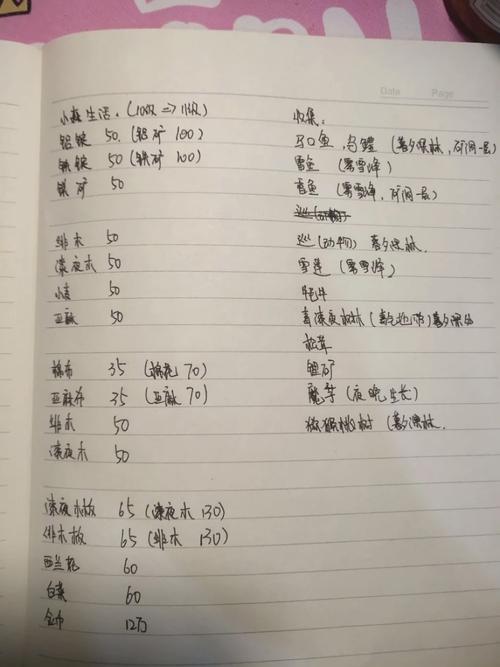 Date Page
小森生活.(10级=>11级)
铝锭 50.(铝矿 100)
铁锭 50(铁矿 100)
镁矿 50
绯木 50
漆夜木 50
小麦 50
亚麻 50
棉布 35 (棉花 70)
亚麻布 35 (亚麻 70)
绯木 50
漆夜木 50
漆夜木板 65 (漆夜木 130)
绯木板 65 (绯木 130)
西兰花 60
白菜 60
金币 12万
收集:
马口鱼,乌鳢 (暮夕深林,矿洞一层)
雪鱼 (雾雪峰)
香鱼 (雾雪峰,矿洞一层)
巡(动物) 暮夕深林.
雪莲 (雾雪峰)
牦牛
松茸
锂矿
魔芋 (夜晚生长)
猕猴桃树 (暮夕深林.